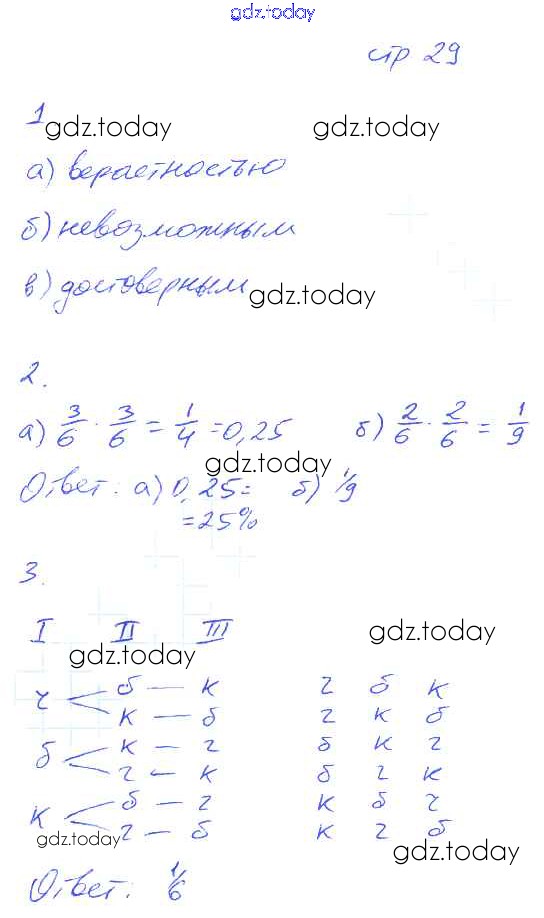 gdz.today
стр 29
1
gdz.today gdz.today
а) вероятностью
б) невозможным
в) достоверным
gdz.today
2.
а) 3/6 · 3/6 = 1/4 = 0,25 б) 2/6 · 2/6 = 1/9
gdz.today
Ответ: а) 0,25 = б) 1/9
= 25%
3.
I II III
gdz.today
gdz.today
ч < б — к ч б к
к — б ч к б
б < к — ч б к ч
ч — к б ч к
к < б — ч к б ч
ч — б к ч б
gdz.today
gdz.today
Ответ: 1/6